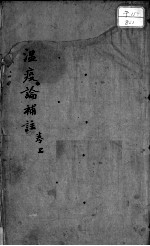 溫疫論補註 卷上